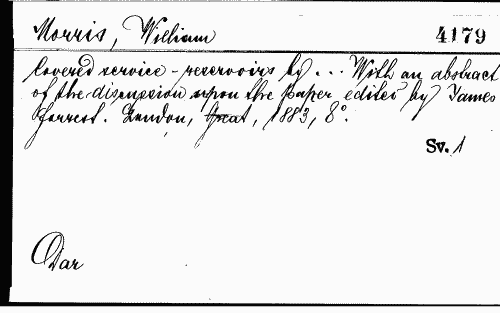 Morris, William 4179
Covered service-reservoirs by ... With an abstract
of the discussion upon the paper edited by James
Forrest. London, Great, 1883, 8°.
Sv. 1
Dar